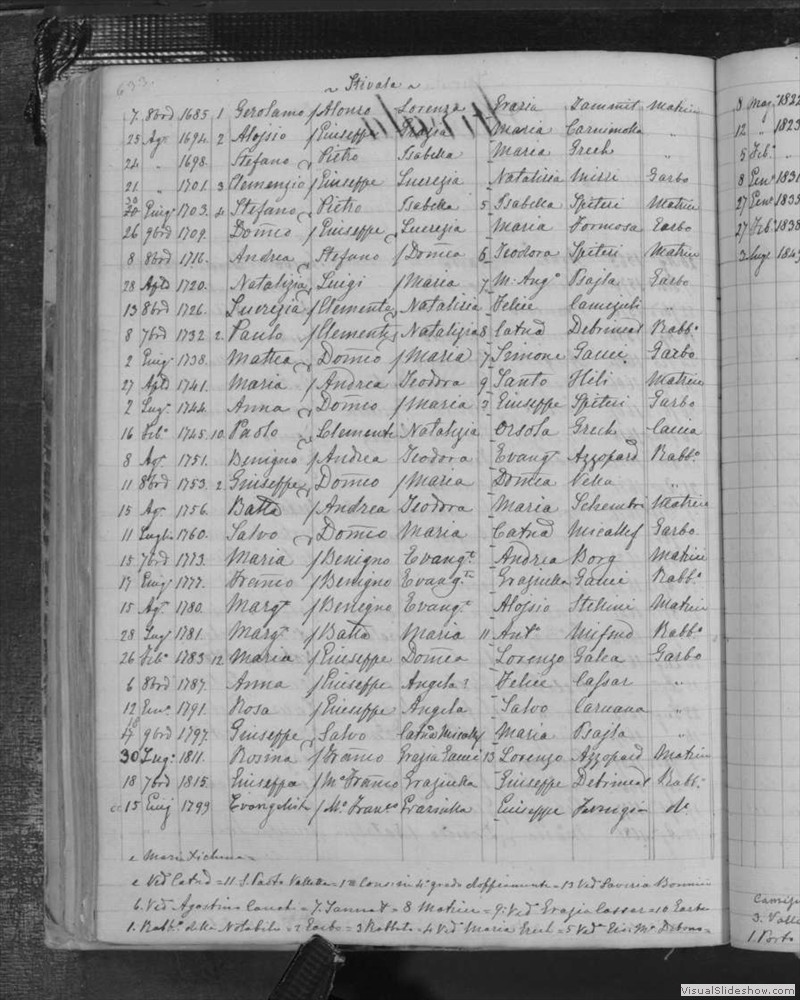 633.
~ Stivala ~
7. 8bre 1685. 1 Gerolamo / Alonso Lorenza Grazia Zammit Matrice
25 Ago 1694. 2 Aloisio / Giuseppe Maria
24 " 1698. Stefano Pietro Isabella Maria Grech "
21 " 1701. 3 Clemenzio / Giuseppe Lucrezia Natalizia Mizzi Garbo
20 Giug. 1703. 4 Stefano Pietro Isabella 5 Isabella Spiteri Matrice
26 9bre 1709. Domco / Giuseppe Lucrezia Maria Formosa Garbo
8 8bre 1716. Andrea Stefano / Domca 6 Teodora Spiteri Matrice
28 Agto 1720. Natalizia Luigi / Maria 7 M. Ango Psajla Garbo
13 8bre 1726. Lucrezia / Clemente Natalizia Felice "
8 7bre 1732. 2. Paulo / Clemente Natalizia 8 Catna Debrincat Rabbo
2 Giug. 1738. Mattea Domco / Maria 7 Simone Gauci Garbo
27 Agto 1741. Maria / Andrea Teodora 9 Santo Hili Matrice
2 Lugo 1744. Anna Domco / Maria 3 Giuseppe Spiteri Garbo
16 Febo 1745. 10. Paolo Clemente Natalizia Orsola Grech Caccia
8 Ago 1751. Benigno / Andrea Teodora Evangta Azzopard Rabbo
11 8bre 1753. 2 Giuseppe Domco / Maria Domca Vella "
15 Ago 1756. Batta / Andrea Teodora Maria Schembri Matrice
11 Luglio 1760. Salvo Domco Maria Catna Micallef Garbo
15 7bre 1773. Maria / Benigno Evangta Andrea Borg Matrice
17 Giug 1777. Franco / Benigno Evangta Graziulla Gauci Rabbo
15 Ago 1780. Margta / Benigno Evangta Aloisio Stellini Matrice
28 Lug 1781. Margta / Batta Maria 11 Anto Mifsud Rabbo
26 Febo 1783 12 Maria / Giuseppe Domca Lorenzo Galea Garbo
6 8bre 1787. Anna / Giuseppe Angela Felice Cassar "
12 Geno 1791. Rosa / Giuseppe Angela Salvo Caruana "
18 9bre 1797. Giuseppe Salvo Catna Micallef Maria Psajla "
30 Lugo 1811. Rosina / Franco Grazia Gauci 13 Lorenzo Azzopard Matrice
18 7bre 1815. Giuseppa / Mo Franco Graziulla Giuseppe Debrincat Rabbo
15 Giug 1799 Evangelista / Mo Franco Graziulla Giuseppe do
e Maria Xichena =
e Veda Catna = 11 S. Paolo Valletta = 12 Consni 4o grado = 13 Veda Saveria Bonnici
6. Veda Agostino = 7. Zannat = 8 Matrice = 9. Veda Grazia Cassar = 10 Garbo
1. Rabbo della Notabile = 2 Garbo = 3 Rabbato = 4 Veda Maria Grech = 5 Veda Gio. Ma Debono =
8 Mag. 1822
12 " 1823
5 Febo "
8 Geno 1831
27 Geno 1835
27 Febo 1838
3. Vall
1. Porto
VisualSlideshow.com